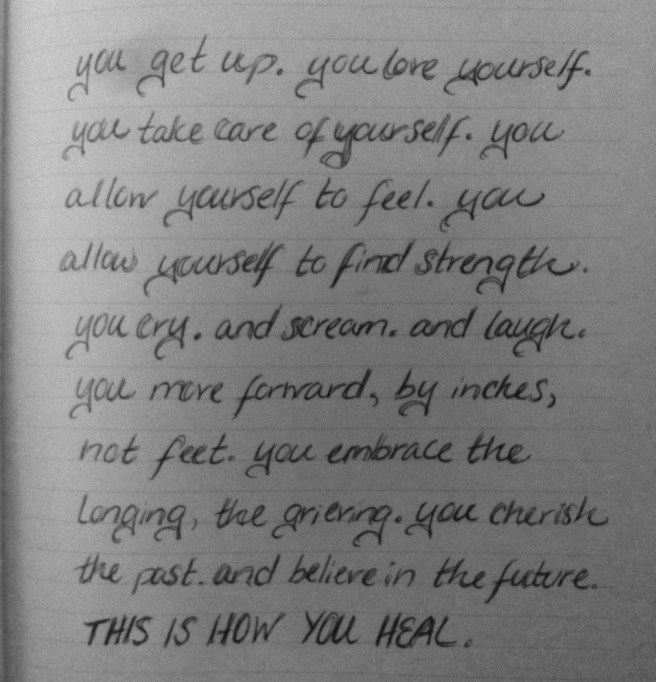 you get up. you love yourself.
you take care of yourself. you
allow yourself to feel. you
allow yourself to find strength.
you cry. and scream. and laugh.
you move forward, by inches,
not feet. you embrace the
longing, the grieving. you cherish
the past. and believe in the future.
THIS IS HOW YOU HEAL.